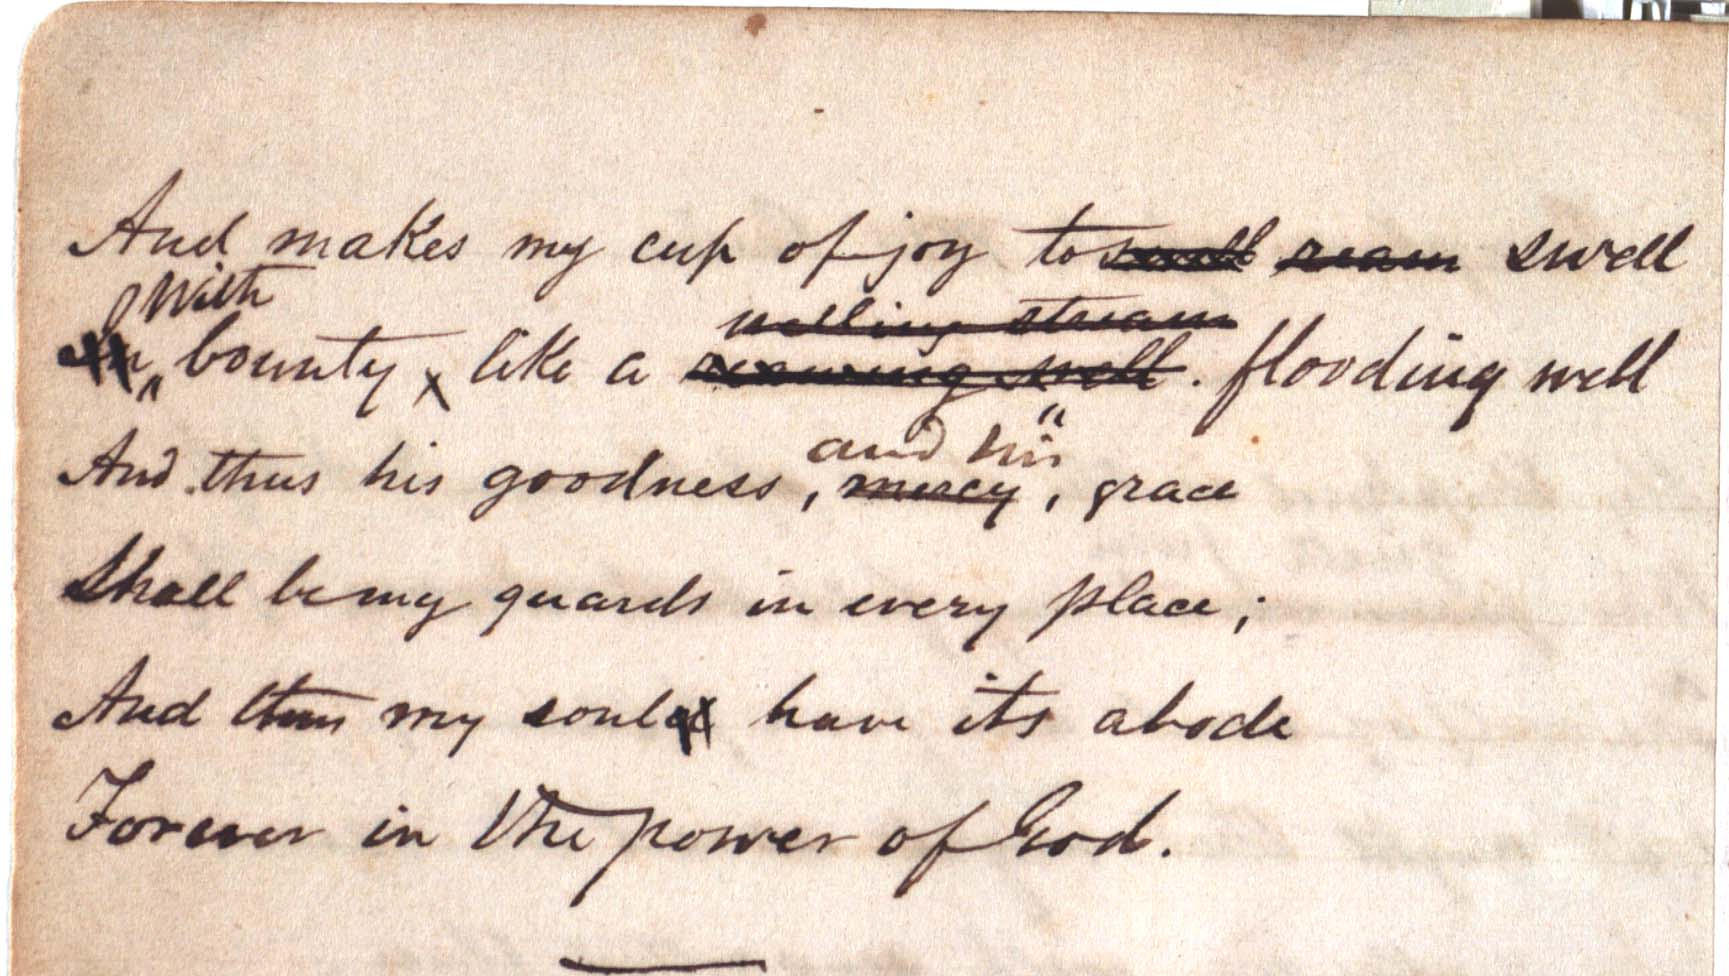 And makes my cup of joy to swell ream swell
With
In bounty, like a flooding well
welling stream
and his
And thus his goodness, mercy, grace
Shall be my guards in every place;
And thus my soul have its abode
Forever in the power of God.